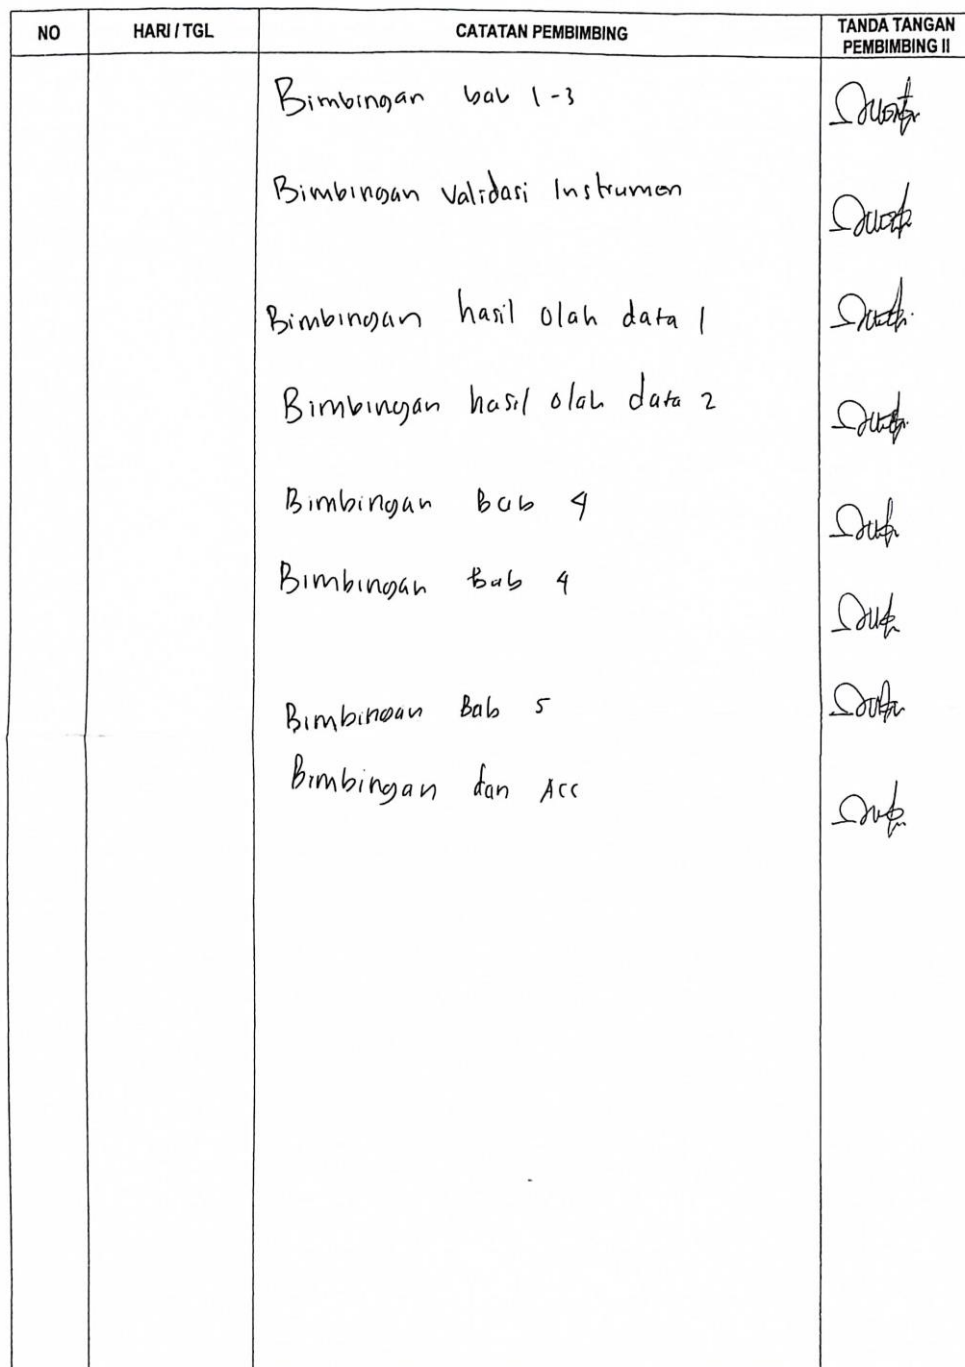 NO HARI / TGL CATATAN PEMBIMBING TANDA TANGAN
PEMBIMBING II
Bimbingan bab 1-3
Bimbingan Validasi Instrumen
Bimbingan hasil olah data 1
Bimbingan hasil olah data 2
Bimbingan Bab 4
Bimbingan Bab 4
Bimbingan Bab 5
Bimbingan dan Acc